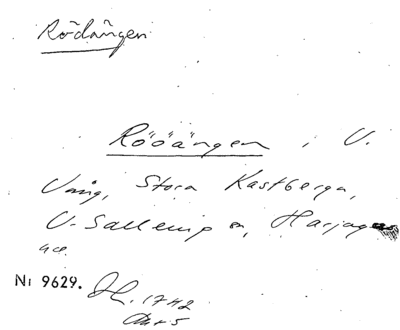 Rödängen
Rööängen i V.
Vång, Stora Kastberga,
V. Sallerup sn, Harjagers
Nr 9629. 1742